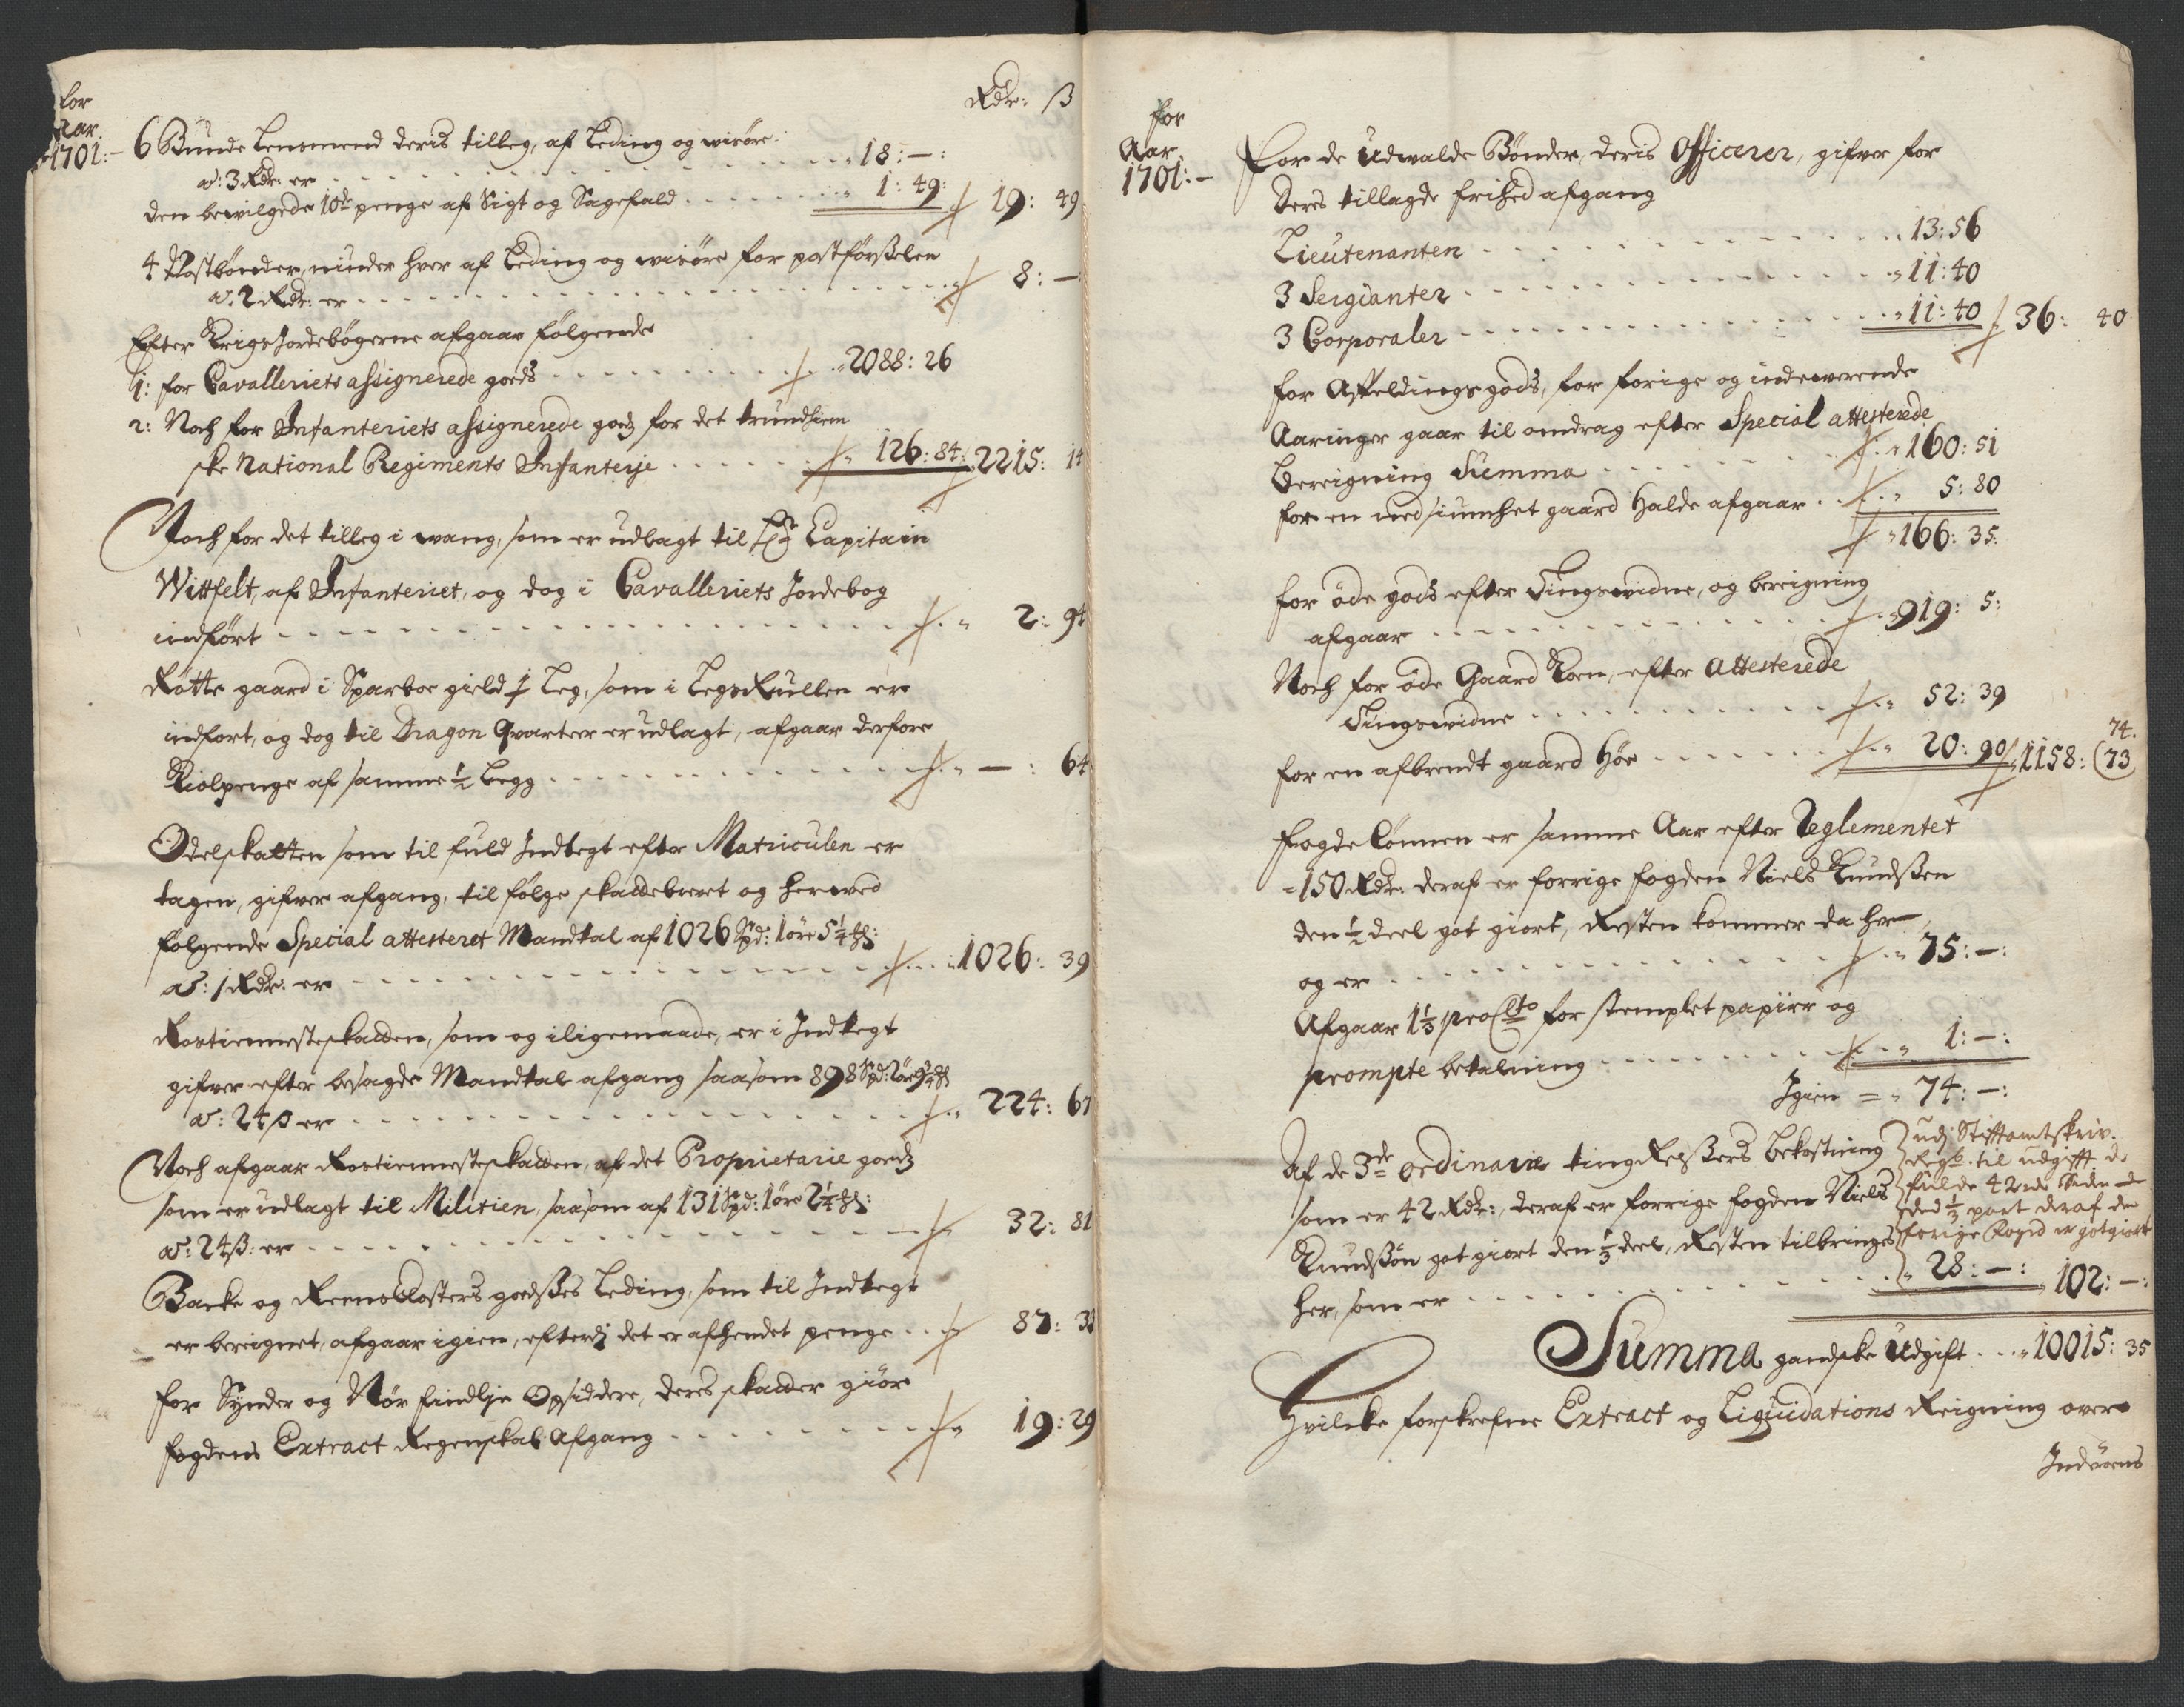 Rdr: ß
for
Aar
1701:-
6 Bunde Lensmend deris tilleg, af Leding og wisöre
a: 3 Rdr: er - - - 18: -:
den bewilgede 10de penge af Sigt og Sagefald - - - 1: 49: 19: 49
4 Postbönder, ninder hver af Leding og wisöre for postförßelen
a: 2 Rdr: er - - - 8: -
Efter Krigs Jordebögerne afgaar følgende
1: for Cavalleriets assignerede gods - - - 2088: 26
2: Noch for Infanteriets assignerede gods for det trundhiem
ske National Regiments Infanterje - - - 126: 84: 2215: 14
Noch for det tilleg i wang, som er udlagt til Hr Capitain
Wittfelt, af Infanteriet, og dog i Cavalleriets Jordebog
indført - - - 2: 94
Rótte gaard i Sparboe gield ½ Leg, som i Legs Rullen er
indført, og dog til Dragon Qvarteer er udlagt, afgaar derfore
Kiolpenge af samme ½ Legg - - - -: 64
Odelskatten som til fuld Indtegt efter Matriculen er
tagen, gifver afgang, til følge skattebrevet og herved
følgende Special attesteret Mandtal af 1026 Spd: 1 öre 5¼ ß:
a: 1 Rdr: er - - - 1026: 39
Rostiennesteskatten, som og iligemaade, er i Indtegt
gifver efter besagde Mandtal afgang saasom 898 Spd: 2 öre 9¾ ß
a: 24 ß er - - - 224: 67
Noch afgaar Rostiennesteskatten, af det Proprietarie gods
som er udlagt til Militien, saasom af 131 Spd: 1 öre 2¼ ß:
a: 24 ß: er - - - 32: 81
Backe og Reensklosters godßes Leding, som til Indtegt
er beregnet, afgaar igien, efterdj det er afhendet penge - - 87: 33
for Synder og Nör findlje Opsiddere, deres skatter giör
fogdens Extract Regenskab Afgang - - - 19: 29
for
Aar
1701:-
For de Udvalde Bönder, deris Officerer, gifver for
deres tillagde frihed afgang
Lieutenanten - - - 13: 56
3 Sergianter - - - 11: 40
3 Corporaler - - - 11: 40 36: 40
for Affeldingsgods, for forige og indewerende
Aaringer gaar til omdrag efter Special attesterede
Bereigning Summa - - - 160: 51
for en nedsiunchet gaard Halde afgaar - - 5: 80
166: 35:
for öde gods efter Tingsvidne, og bereigning
afgaar - - - 919: 5:
Noch for öde Gaard Koen, efter attesterede
Tingsvidne - - - 52: 39
74.
for en afbrendt gaard Höe - - - 20: 90 1158: 73
fogde Lönnen er samme Aar efter Reglementet
150 Rdr: deraf er forrige fogden Niels Knudßen
den ½ deel got giort, Resten kommer da her
og er - - - 75: -:
Afgaar 1⅓ pro Cto for stemplet papiir og
prompte betalning - - - 1: -:
Igien = 74: -:
Af de 3de ordinarie ting Reißers Bekostning
som er 42 Rdr:, deraf er forrige fogden Niels
Knudßön got giort den ⅓ deel, Resten tilbringes
her, som er - - - 28: -: 102: -:
udj Stifftamtskriv.
Regsk. til udgifft de
fulde 42 rdr
ded ⅓ part deraf den
forige foged er gotgiort
Summa gandske Udgift - - 10015: 35
Hvilcke forskrefne Extract og Liquidations Reigning over
Inderöens